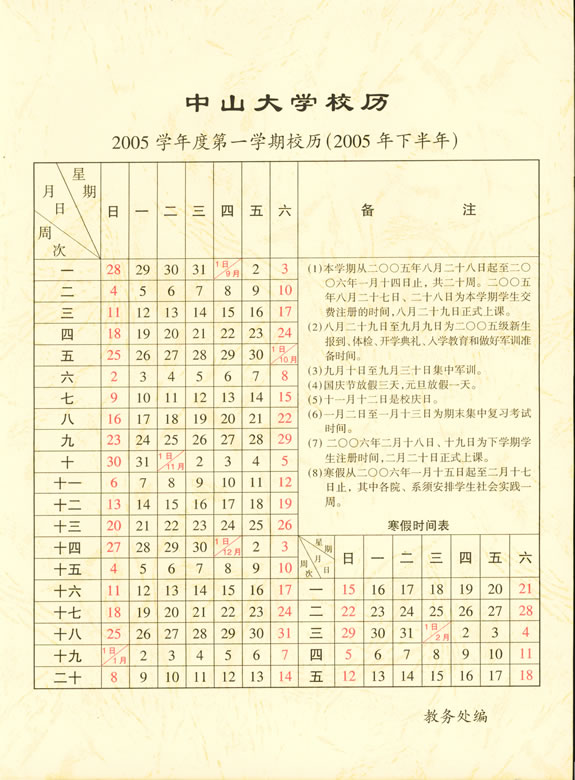 中山大学校历
2005 学年度第一学期校历(2005 年下半年)
星期
月
日
周次
日 一 二 三 四 五 六
一 28 29 30 31 1日/9月 2 3
二 4 5 6 7 8 9 10
三 11 12 13 14 15 16 17
四 18 19 20 21 22 23 24
五 25 26 27 28 29 30 1日/10月
六 2 3 4 5 6 7 8
七 9 10 11 12 13 14 15
八 16 17 18 19 20 21 22
九 23 24 25 26 27 28 29
十 30 31 1日/11月 2 3 4 5
十一 6 7 8 9 10 11 12
十二 13 14 15 16 17 18 19
十三 20 21 22 23 24 25 26
十四 27 28 29 30 1日/12月 2 3
十五 4 5 6 7 8 9 10
十六 11 12 13 14 15 16 17
十七 18 19 20 21 22 23 24
十八 25 26 27 28 29 30 31
十九 1日/1月 2 3 4 5 6 7
二十 8 9 10 11 12 13 14
备 注
(1)本学期从二〇〇五年八月二十八日起至二〇
〇六年一月十四日止，共二十周。二〇〇五
年八月二十七日、二十八日为本学期学生交
费注册的时间，八月二十九日正式上课。
(2)八月二十九日至九月九日为二〇〇五级新生
报到、体检、开学典礼、入学教育和做好军训准
备时间。
(3)九月十日至九月三十日集中军训。
(4)国庆节放假三天，元旦放假一天。
(5)十一月十二日是校庆日。
(6)一月二日至一月十三日为期末集中复习考试
时间。
(7)二〇〇六年二月十八日、十九日为下学期学
生注册时间，二月二十日正式上课。
(8)寒假从二〇〇六年一月十五日起至二月十七
日止，其中各院、系须安排学生社会实践一
周。
寒假时间表
星期
月
日
周次
日 一 二 三 四 五 六
一 15 16 17 18 19 20 21
二 22 23 24 25 26 27 28
三 29 30 31 1日/2月 2 3 4
四 5 6 7 8 9 10 11
五 12 13 14 15 16 17 18
教务处编